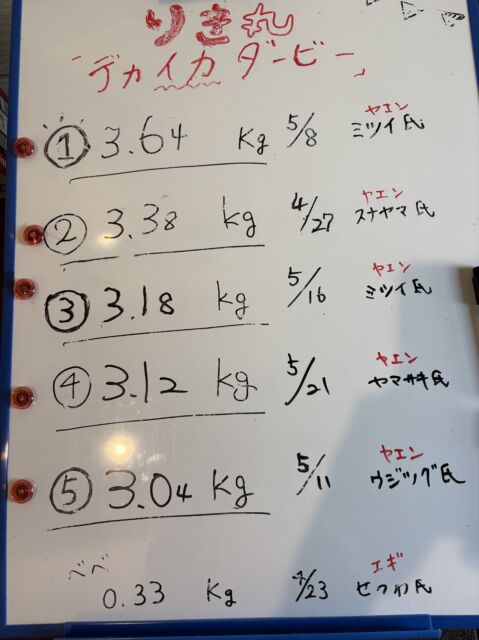 りき丸
「デカイカダービー」
① 3.64 Kg 5/8 ヤエン ミツイ氏
② 3.38 kg 4/27 ヤエン スナヤマ氏
③ 3.18 kg 5/16 ヤエン ミツイ氏
④ 3.12 kg 5/21 ヤエン ヤマサキ氏
⑤ 3.04 Kg 5/11 ヤエン ウジツグ氏
べべ 0.33 Kg /23 エギ せつわ氏